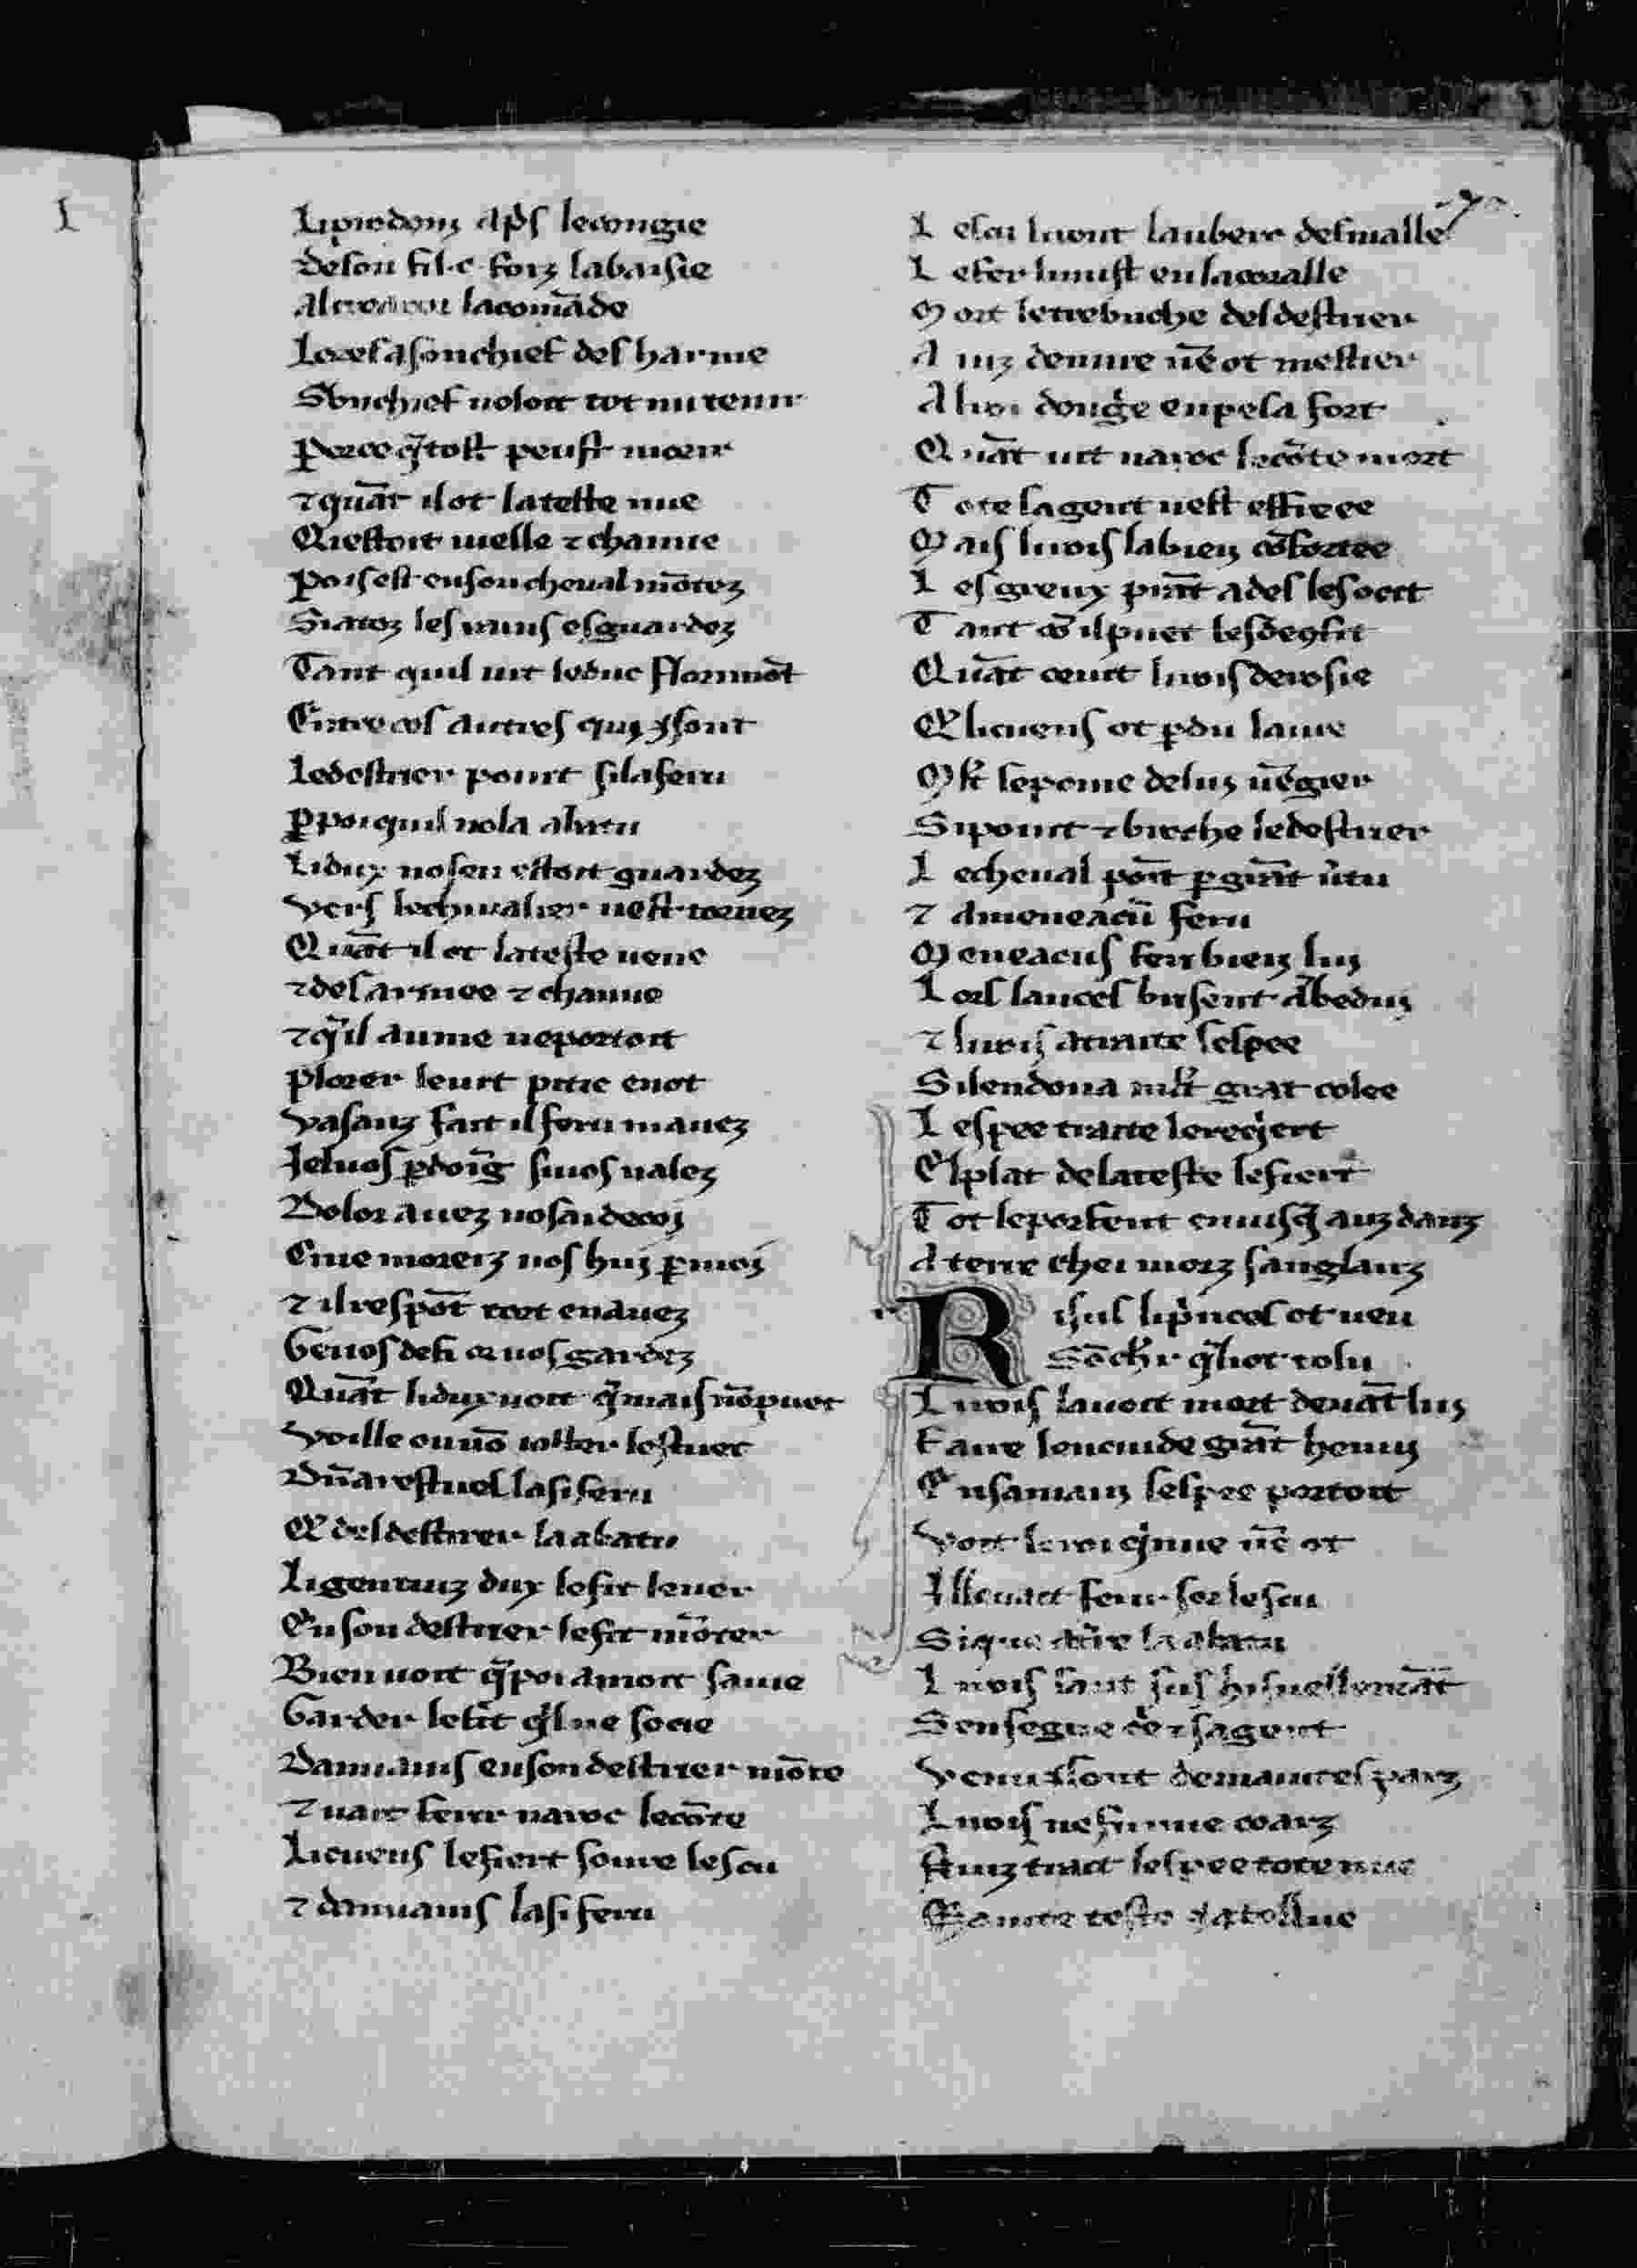 I
Li prodom apˢ le congie
De son fil .c. foiz la baisie
Al creator la comāde
Lores a son chief desharme
Son chief uoloit tot nu tenir
Por ce q̄ tost peust morir
⁊ quāt il ot la teste nue
Qi estoit uielle ⁊ chanue
Pois est en son cheual mōtez
Si a toz les rains esguardez
Tant quil uit le duc Florimōt
Entre les autres qui y sont
Le destrier point si la feru
P̱ poi quil nola abatu
Li dux no sen estoit guardez
Vers le cheualier nest tornez
Quāt il ot la teste ueue
⁊ desarmee ⁊ chanue
⁊ q̄ il aume ne portoit
Plorer leuit pitie en ot
Vasauz fait il feru mauez
Je luos p̱doīg si uos ualez
Dolor auez no sai de coi
E me moreiz uos hui p̱ moi
⁊ il respōt tort en auez
Ge uos defi or uos gardez
Quāt li dux uoit q̄ mais nō puet
Voille ou nō ioster lestuet
Dūn arestuel la si feru
Q̄ del destrier la abatu
Li gentiuz dux le fit leuer
En son destrier le fit mōter
Bien uoit q̄ poi amoit sa uie
Garder le fit q̄l ne socie
Damianis en son destrier mōte
⁊ uait ferir naroc le cōte
Licuens le fiert soure lescu
⁊ damianis la si feru
L escu li ront lauberc desmalle
L e fer li mist en la coralle
M ort le trebuche del destrier
A luj de mire nē ot mestier
A lroi dougͤe en pesa fort
Quāt uit naroc le cōte mort
T ote sa gent nest effree
M ais li rois la bien cōfortee
L es greux prāt adel lesocit
T ant cō il puet les decōfit
Quāt ceuit li rois de rosie
Q̄ licuens ot p̱du la uie
Mlt̄ se pome de luj uēgier
Si point ⁊ broche le destrier
L e cheual poīt p̱ grāt ûtu
⁊ a meneacū feru
M eneacus feri bien luj
L ors lances brisent ābeduj
⁊ li rois a traite lespee
Si lendona mlt̄ grāt colee
L espee traite le reqiert
El plat de la teste le fiert
T ot le porfent en iusq̄ auz danz
A terre chei morz sanglanz
R isus li pͥnces ot ueu
Sō chͤr q̄ li ot tolu
L i rois lauoit mort deuāt luj
Faire len cuide grāt henuj
En sa main lespee portoit
Voit le roi q̄ nue nē ot
Il leuait ferir sor lescu
Si que a tͤre la abatu
L i rois saut sus hisnellemāt
Senseigne cͥe ⁊ sa gent
Venu i sont de maintes parz
Li rois ne fu mie coarz
Ainz trait lespee tote nue
Mainte teste